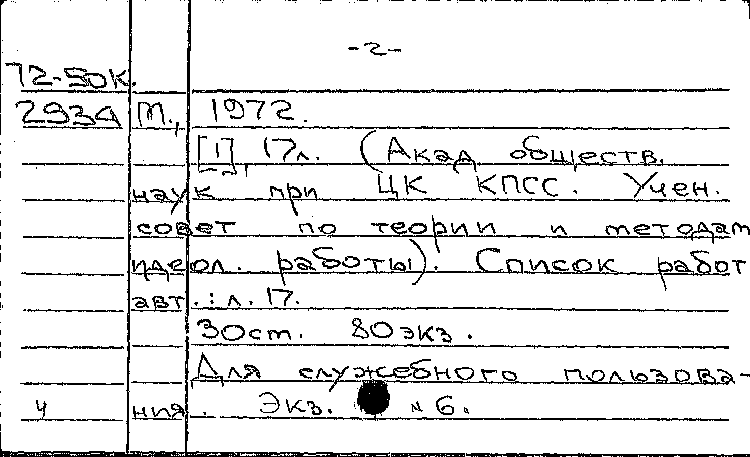 -2-
72-50К.
2934 М., 1972.
[1], 17л. (Акад обществ.
наук при ЦК КПСС. Учен.
совет по теории и методам
идеол. работы). Список работ
авт.: л. 17.
30ст. 80экз.
Для служебного пользова-
ч ния. Экз. № 6.